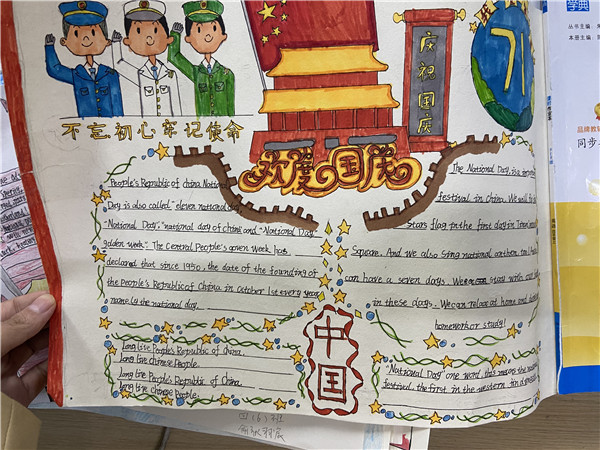 庆祝国庆
71
不忘初心牢记使命
欢度国庆
People's Republic of China National
Day is also called "eleven national day,
"National Day", "national day of china" and "National Day
golden week". The Central People's goven week has
declared that since 1950, the date of the founding of
the People's Republic of China in October 1st every year
namely the national day.
Long live People's Republic of China.
long live Chinese People.
Long live People's Republic of China.
long live Chinese People.
中国
The National Day is a
festival in China. We will
stars flag in the first day in
Square. And we also sing national anthem.
can have a seven days. We can start work and
in these days. We can relax at home and
homework or study!
"National Day" one word, this means the
festival, the first in the western
学典
丛书主编：
本册主编：
同步